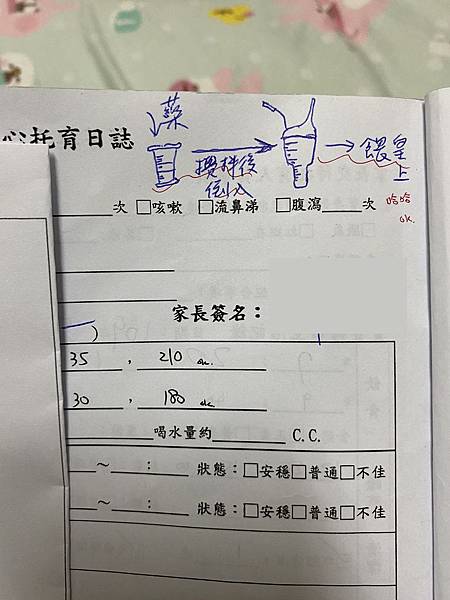 藥
心托育日誌
攪拌後
倒入
餵皇
上
次 □咳嗽 □流鼻涕 □腹瀉 次
哈哈
ok.
家長簽名：
)
35 , 210
30 , 180
喝水量約 C.C.
～ ： 狀態：□安穩□普通□不佳
～ ： 狀態：□安穩□普通□不佳